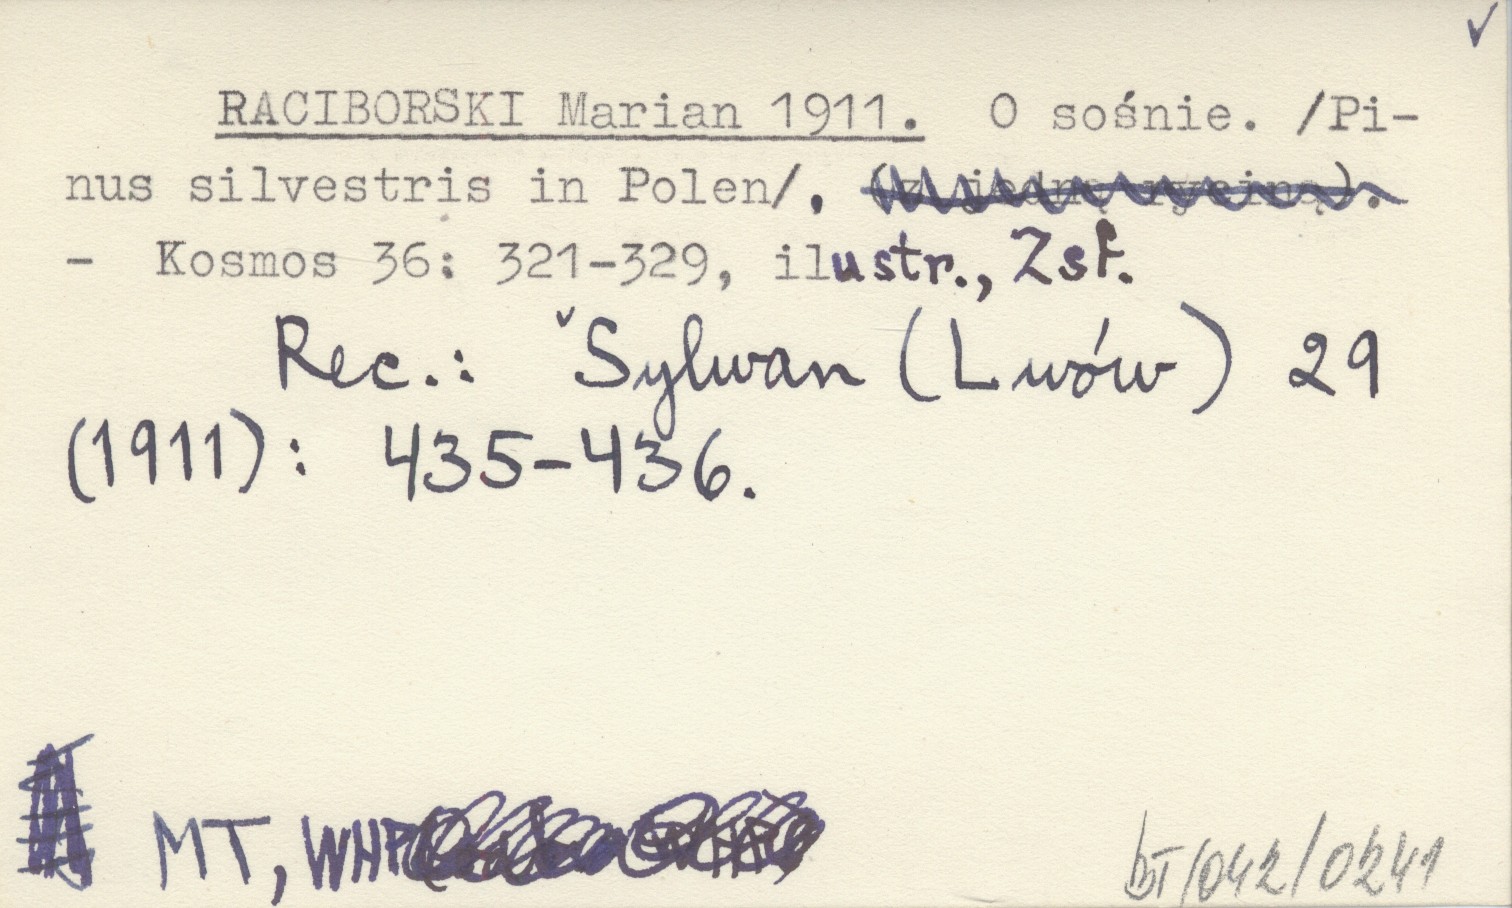 RACIBORSKI Marian 1911. O sośnie. /Pi-
nus silvestris in Polen/, (z jedną ryciną).
- Kosmos 36: 321-329, ilustr., Zsf.
Rec.: Sylwan (Lwów) 29
(1911): 435-436.
MT, WHP
/042/0241